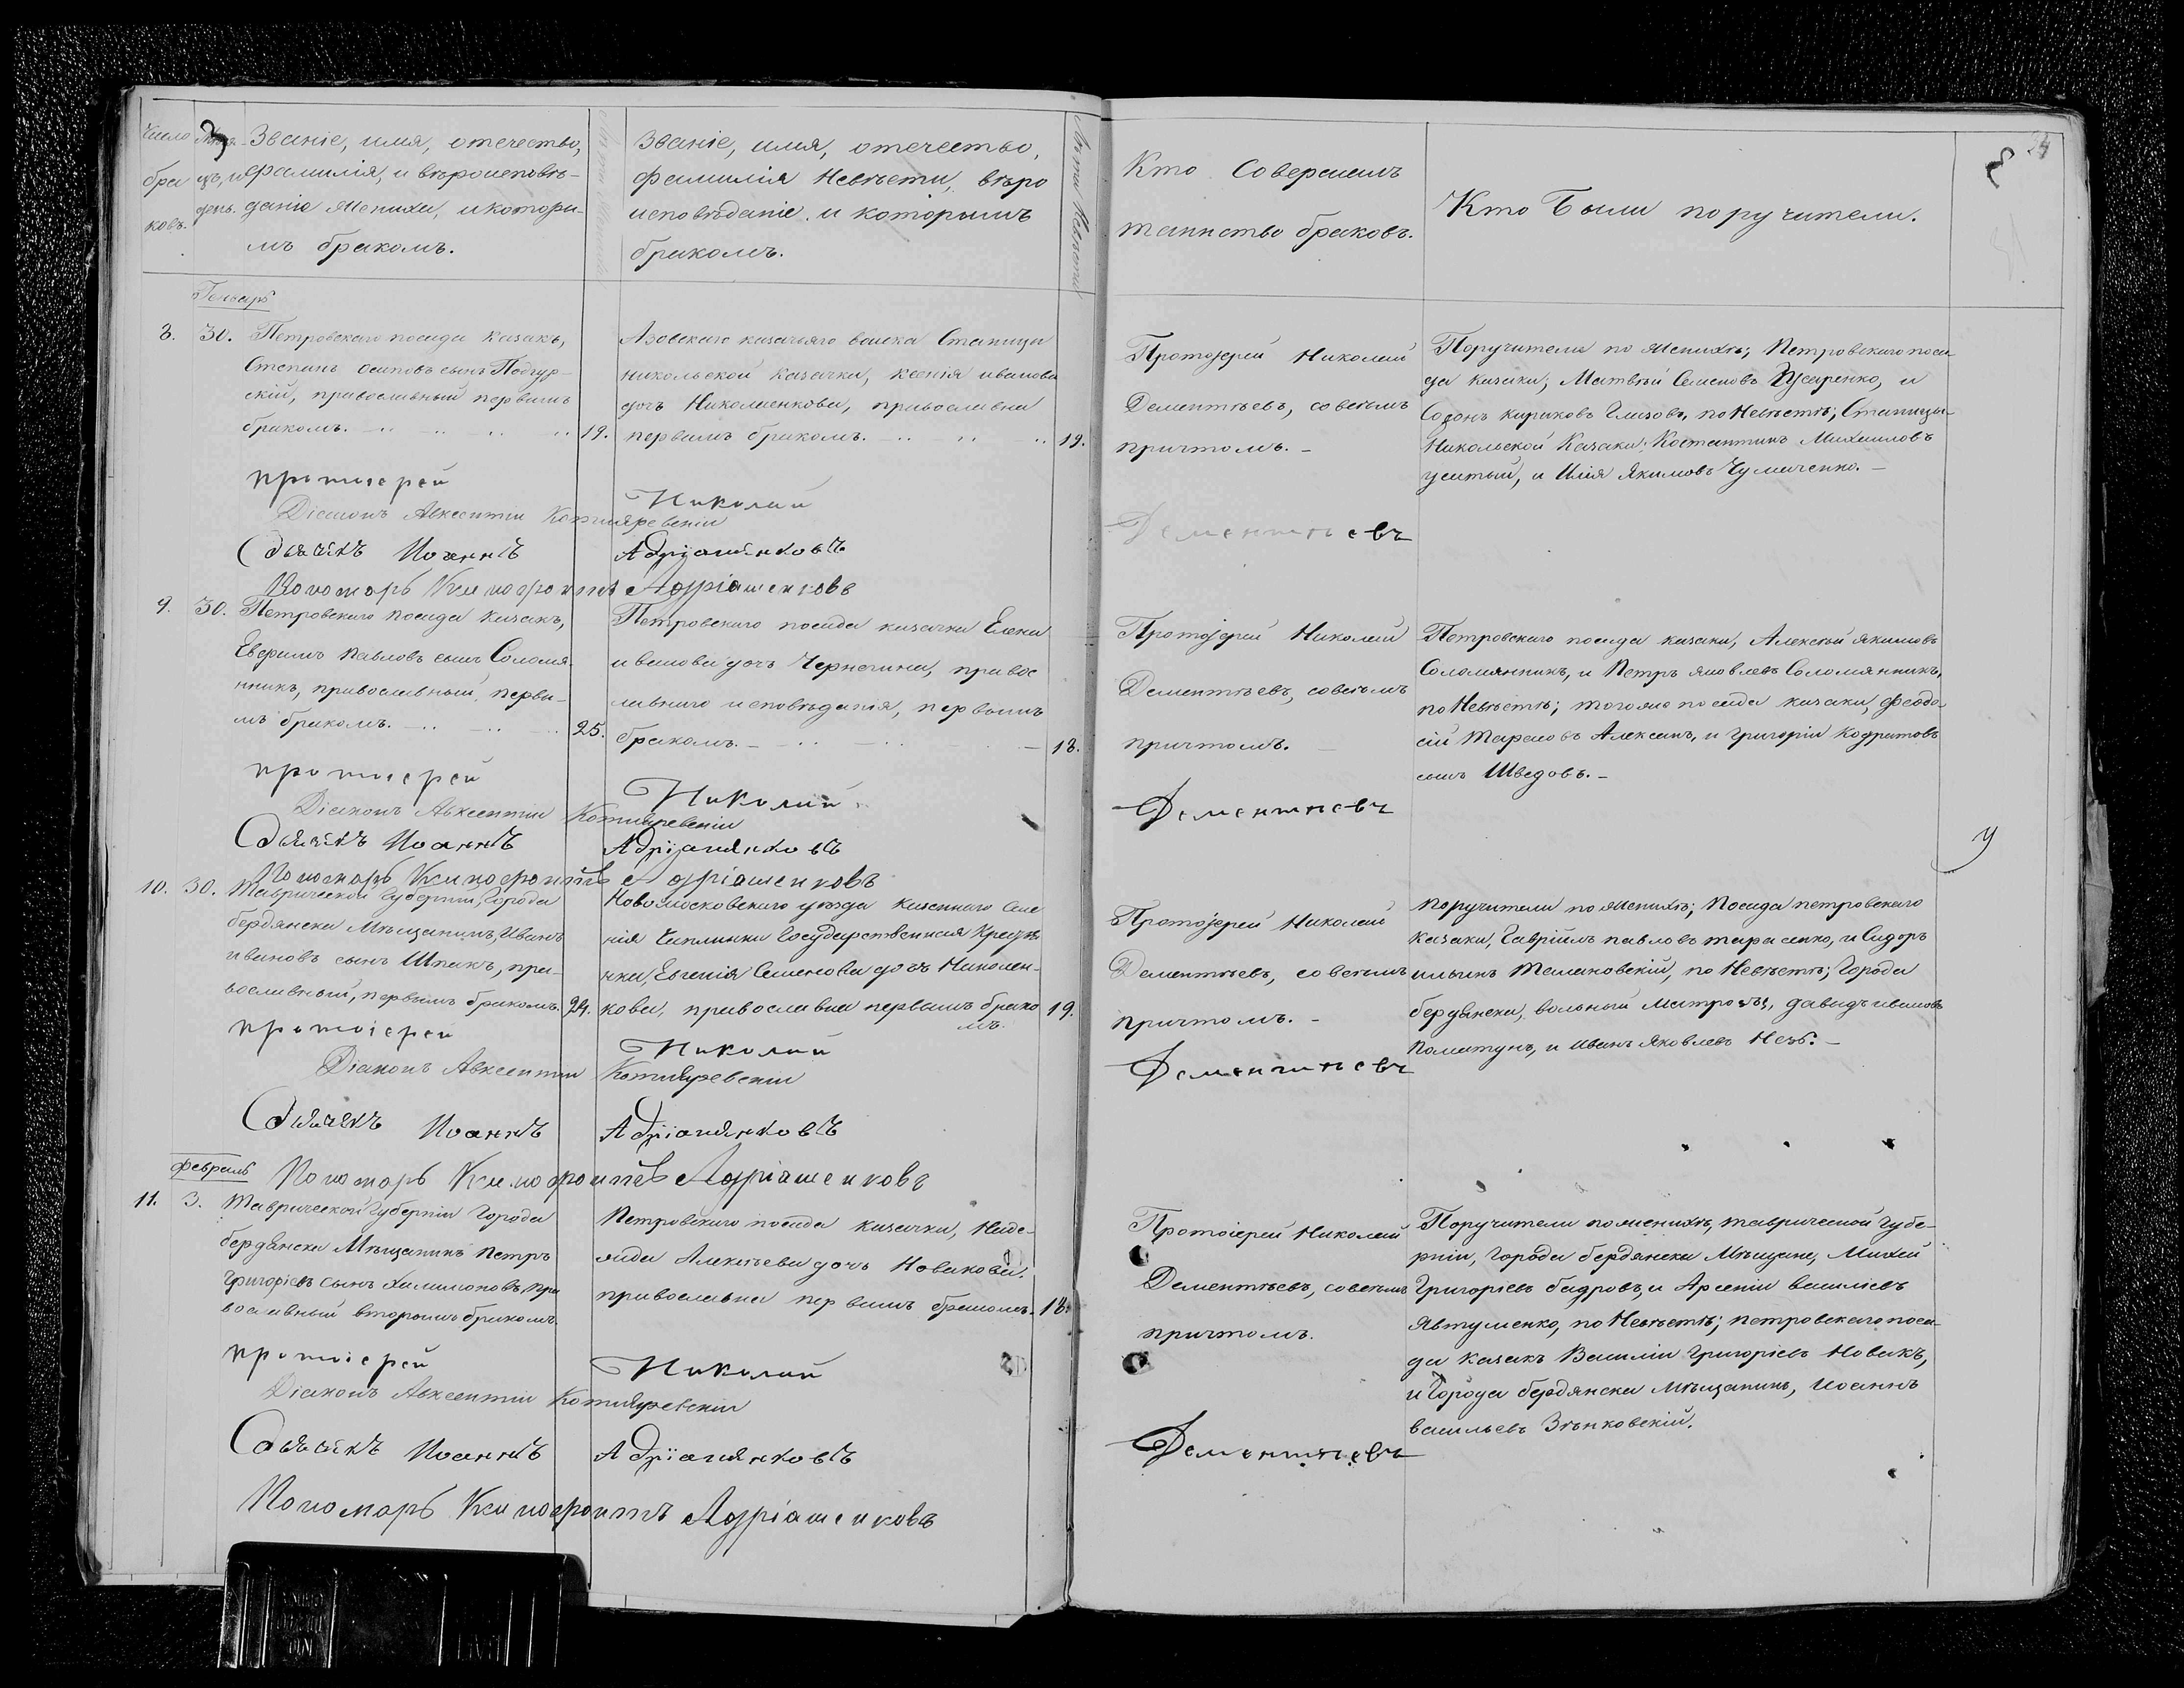 Число
бра
ковъ.
Меся-
цъ, и
день.
Званіе, имя, отечество,
фамилія, и вѣроисповѣ-
даніе Жениха, и которы-
мъ бракомъ.
Званіе, имя, отечество,
фамилія Невѣсты, вѣро
исповѣданіе и которымъ
бракомъ.
Лѣта Невѣсты
Кто Совершилъ
таинство браковъ.
Кто Были поручители.
24
Генварь
8. 30. Петровскаго посада казакъ,
Степанъ осиповъ сынъ Подгур-
скій, православный первымъ
бракомъ. 19.
Азовскаго казачьяго войска Станицы
никольской казачка, ксенія иванова
дочъ Николаенкова, православна
первымъ бракомъ. 19.
Протоіерей Николай
Дементьевъ, совсѣмъ
причтомъ.
Поручители по Женихѣ; Петровскаго поса-
да казаки; Матвѣй Семеновъ Гусаренко, и
Созонъ кириковъ Глизовъ, по Невѣстѣ; Станицы
Никольской Казаки: Костантинъ Михаиловъ
усатый, и Илія Якимовъ Чумаченко.
протоіерей Николай Дементьевъ
Діаконъ Авксентій Котляревскій
Дьячекъ Иоаннъ Адріяшенковъ
Пономарь Ксенофонтъ Адріашенковъ
9. 30. Петровскаго посада казакъ,
Евфимъ Павловъ сынъ Соломя-
нникъ, православный, первы-
мъ бракомъ. 25.
Петровскаго посада казачка Елена
иванова дочъ Чернегина, правос
лавнаго исповѣданія, первымъ
бракомъ. 18.
Протоіерей Николай
Дементьевъ, совсѣмъ
причтомъ.
Петровскаго посада казаки, Алексѣй якимовъ
Соломянникъ, и Петръ яковлевъ Соломянникъ,
по Невѣстѣ; тогоже посада казаки, феодо-
сій тарасовъ Алексинъ, и григорій кодратовъ
сынъ Шведовъ.
протоіерей Николай Дементьевъ
Діаконъ Авксентій Котляревскій
Дьячекъ Иоаннъ Адріяшенковъ
Пономарь Ксенофонтъ Адріашенковъ
10. 30. Таврической губерніи, Города
бердянска Мѣщанинъ, Иванъ
ивановъ сынъ Шпакъ, пра-
вославный, первымъ бракомъ. 24.
Новомосковскаго уѣзда казеннаго Селе
нія Чаплинки Государственная Крестья
нка, Евгенія Семенова дочъ Николен-
кова, православна первымъ брако
мъ. 19.
Протоіерей Николай
Дементьевъ, совсѣмъ
причтомъ.
поручители по Женихѣ; Посада петровскаго
казаки, Гавріилъ павловъ тарасенко, и Сидоръ
ильинъ Темановскій, по Невѣстѣ; Города
бердянска, вольный Матрозъ, давидъ ивановъ
Поматунъ, и иванъ яковлевъ
протоіерей Николай Дементьевъ
Діаконъ Авксентій Котляревскій
Дьячекъ Иоаннъ Адріяшенковъ
Пономарь Ксенофонтъ Адріашенковъ
февраль
11. 3. Таврической губерніи Города
бердянска Мѣщанинъ петръ
Григоріевъ сынъ Халимоновъ, пра
вославный вторымъ бракомъ.
Петровскаго посада казачка, Наде-
жда Алексѣева дочъ Новакова,
православна первымъ бракомъ. 18.
Протоіерей Николай
Дементьевъ, совсѣмъ
причтомъ.
Поручители по женихѣ, таврической губе-
рніи, города бердянска Мѣщане, Михей
Григоріевъ бадровъ, и Арсеній василіевъ
Явтушенко, по Невѣстѣ; петровскаго поса-
да казакъ Василій Григоріевъ Новакъ,
и города бердянска мѣщанинъ, иоаннъ
васильевъ Зѣнковскій.
протоіерей Николай Дементьевъ
Діаконъ Авксентій Котляревскій
Дьячекъ Иоаннъ Адріяшенковъ
Пономарь Ксенофонтъ Адріашенковъ